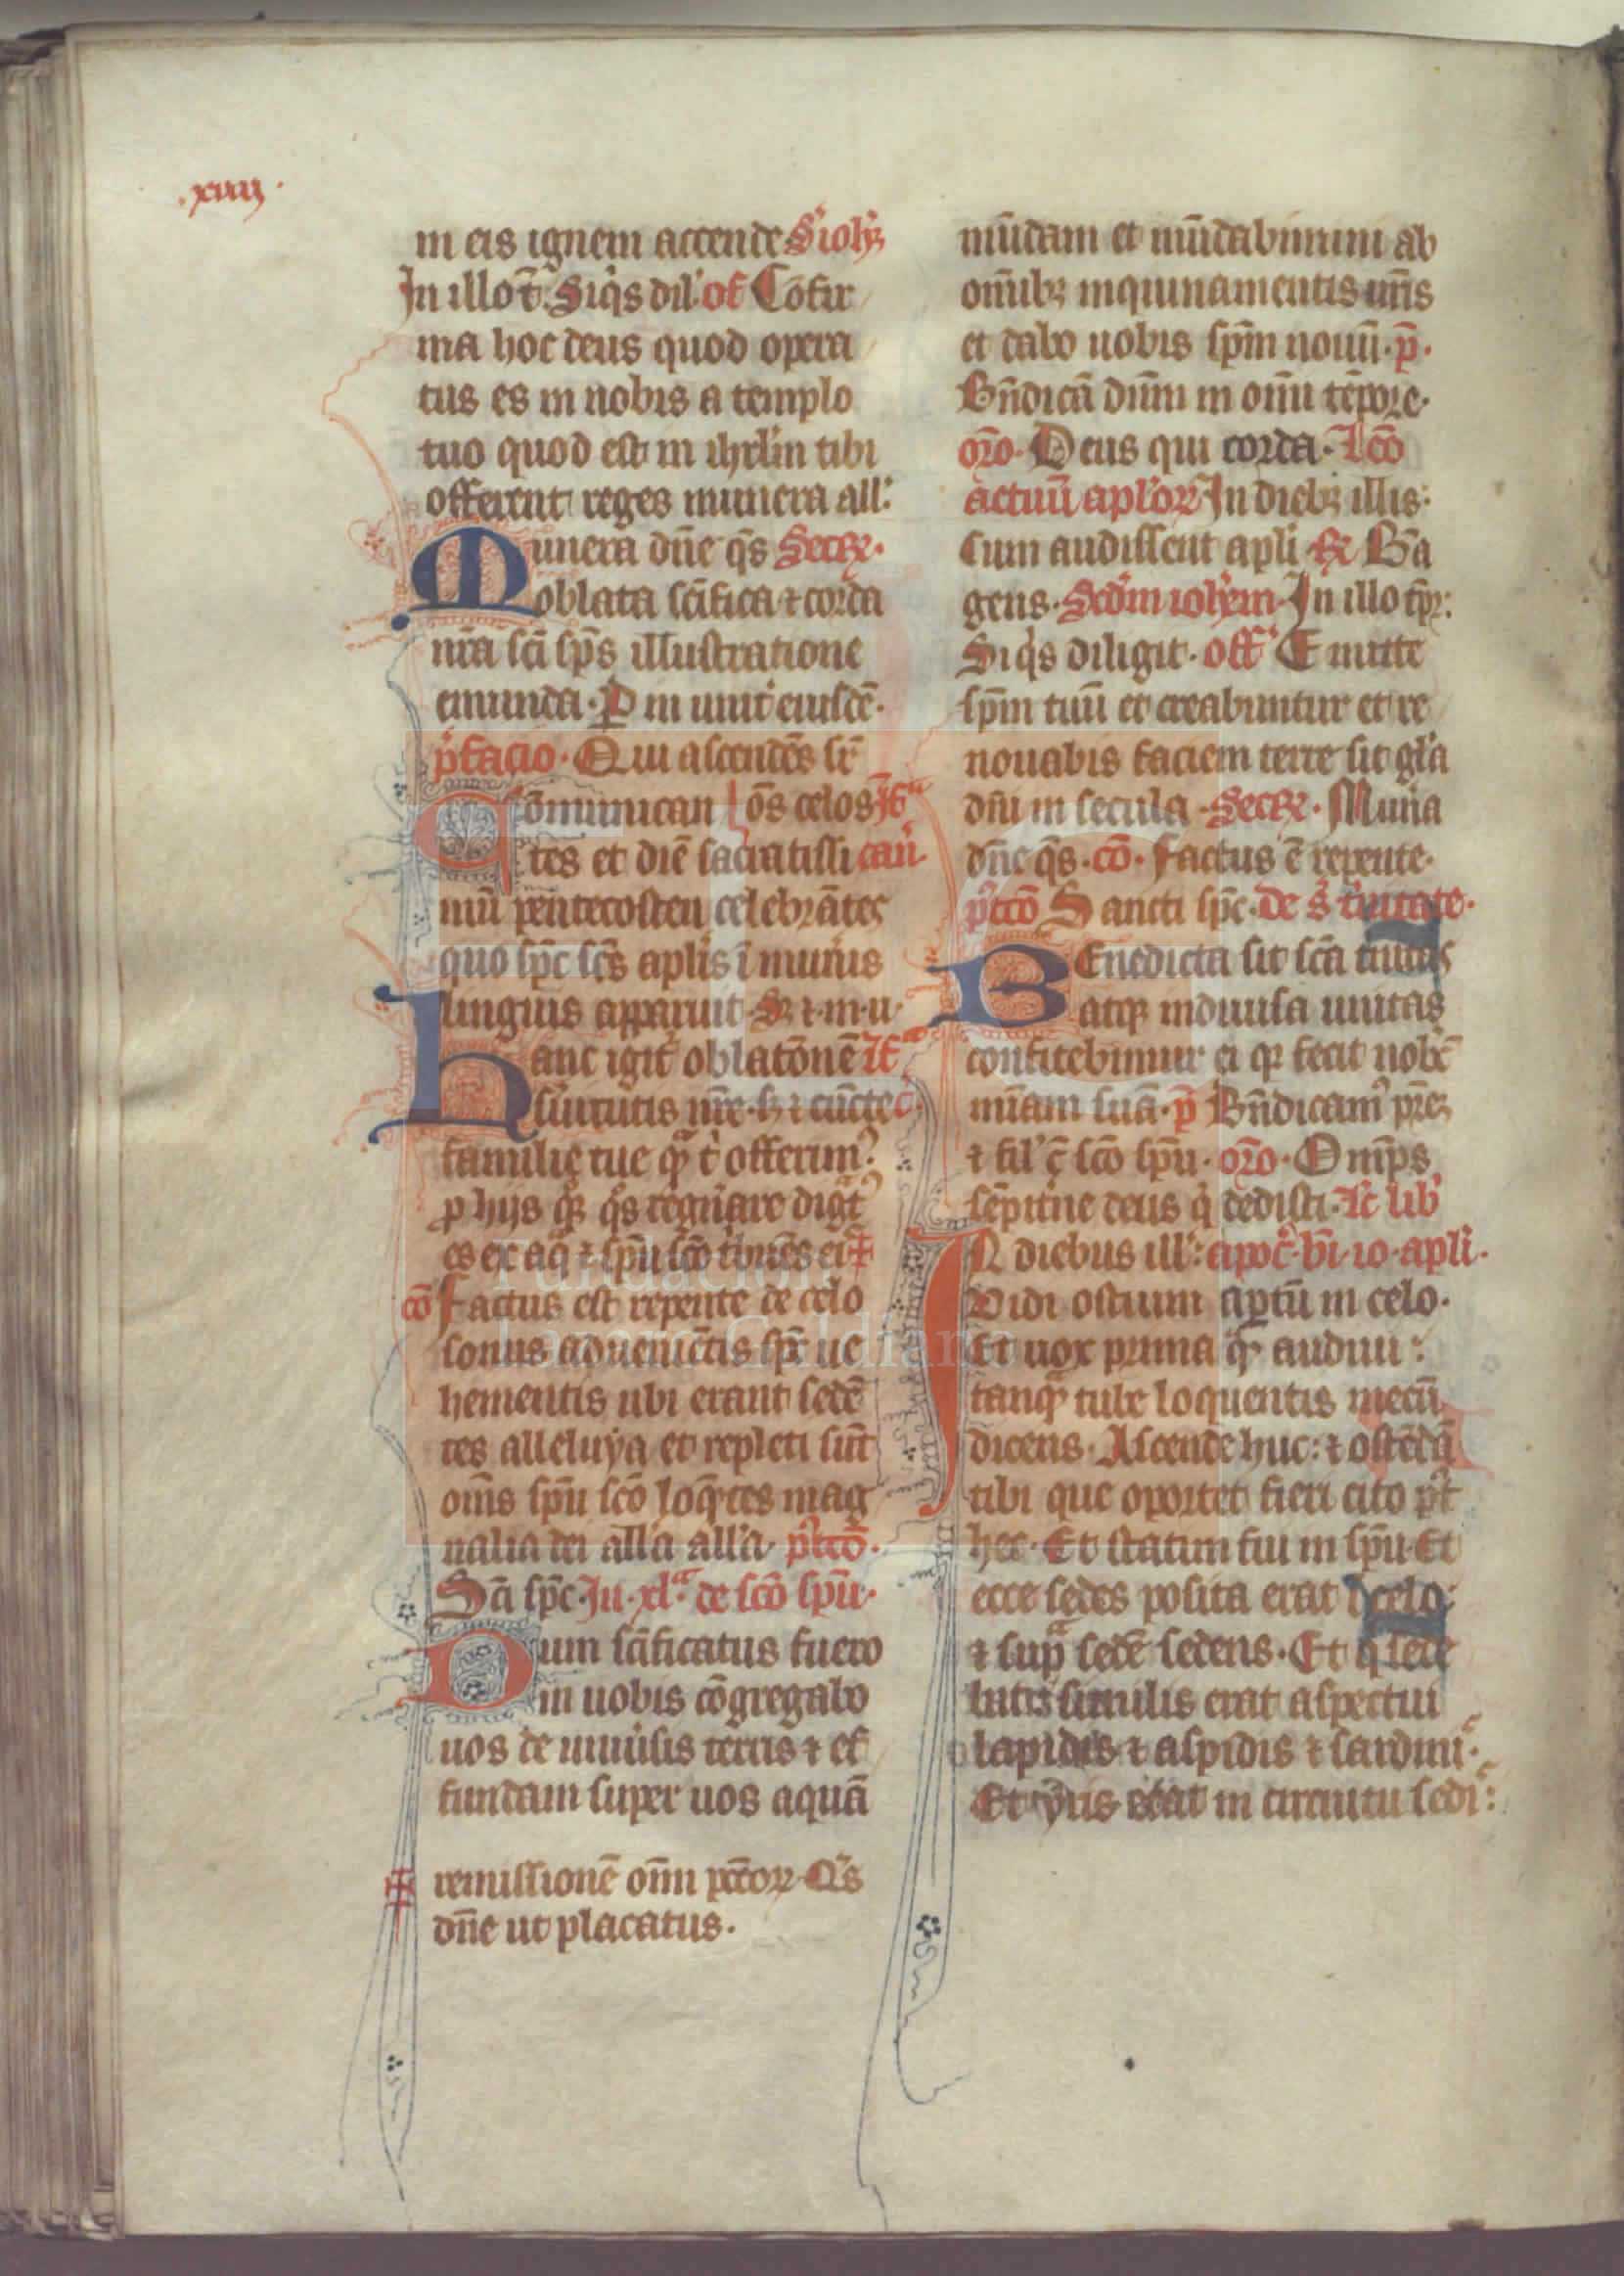 .xviij.
in eis ignem accende S' ioh'
In illo t̄. Siq̄s dil' of̄ Cōfir
ma hoc deus quod opera
tus es in nobis a templo
tuo quod est in ihrl̄m tibi
offerent reges munera all'
Munera dn̄e q̄s Secr̄.
oblata sc̄ifica ⁊ corda
nr̄a sc̄i sp̄s illustratione
emunda. P in unit' eiusdē.
p̄facio. Qui ascendēs sr̄
Cōmunican os celos Iſ̄
tes et diē sacratissi cañ.
mū pentecosten celebrātes
quo sp̄c sc̄s apl̄is ī mui̇s
linguis apparuit. S; ⁊ m u.
Hanc igit' oblatōnē Iſ̄
s̄uitutis nr̄e. s; ⁊ cūcte
familie tue q̄ t' offerim'
p hijs q̄s q̄s reḡnare dig̃t'
es ex aq̄ ⁊ sp̄u sc̄o t'buēs eis
cō Factus est repente de celo
sonus aduenientis sp̄c ue
hementis ubi erant sedē
tes alleluya et repleti sūt
om̄s sp̄u sc̄o loq̄ntes mag
nalia dei all'a all'a. p̄tcō.
Sc̄i sp̄c. Iñ. xl.ª de sc̄o sp̄u.
Dum sc̄ificatus fuero
in uobis cōgregabo
uos de uniu'sis terris ⁊ ef
fundam super uos aquā
remissionē om̄i pc̄cor. Q̄s
dn̄e ut placatus.
mūdam et mūdabimini ab
om̄ib; inquinamentis ur̄is
et dabo uobis sp̄m nouū. p̄.
Bn̄dicā dn̄m in om̄i tēpore.
or̄o. Deus qui corda. Lc̄o
actuū apl'or In dieb; illis:
Cum audissent apl̄i ℟ Bā
gens. Scd̄m ioh̄em. In illo tp̄r:
Siq̄s diligit. off' Emitte
sp̄m tuū et creabuntur et re
nouabis faciem terre sit gl̄a
dn̄i in secula. Secr̄. Mun̄a
dn̄e q̄s. cō. Factus ē repente.
p̄tcō Sancti sp̄c. de s̄ t'nitate.
Benedicta sit sc̄a t'nitas
atq; indiuisa unitas
confitebimur ei q; fecit nobc̄
mīam suā. p̄ Bn̄dicam' pr̄e;
⁊ fil' c̄ sc̄o sp̄u. or̄o. Om̄ps
sēpit'ne deus q̇ dedisti. Lc̄ lib'
In diebus ill': apoc̄. bī. io. apl̄i.
Vidi ostium aptū in celo.
Et uox prima q̄ audiui:
tanq̄ tube loquentis mecū
dicens. Ascende huc: ⁊ ostēdā
tibi que oportet fieri cito p̄t
hec. Et statim fui in sp̄u. Et
ecce sedes posita erat ī celo:
⁊ sup̄ sedē sedens. Et q̇ sede
bat similis erat aspectui
lapidis ⁊ aspidis ⁊ sardini.
Et yris erat in circuitu sedi':
Fundación
Lázaro Galdiano